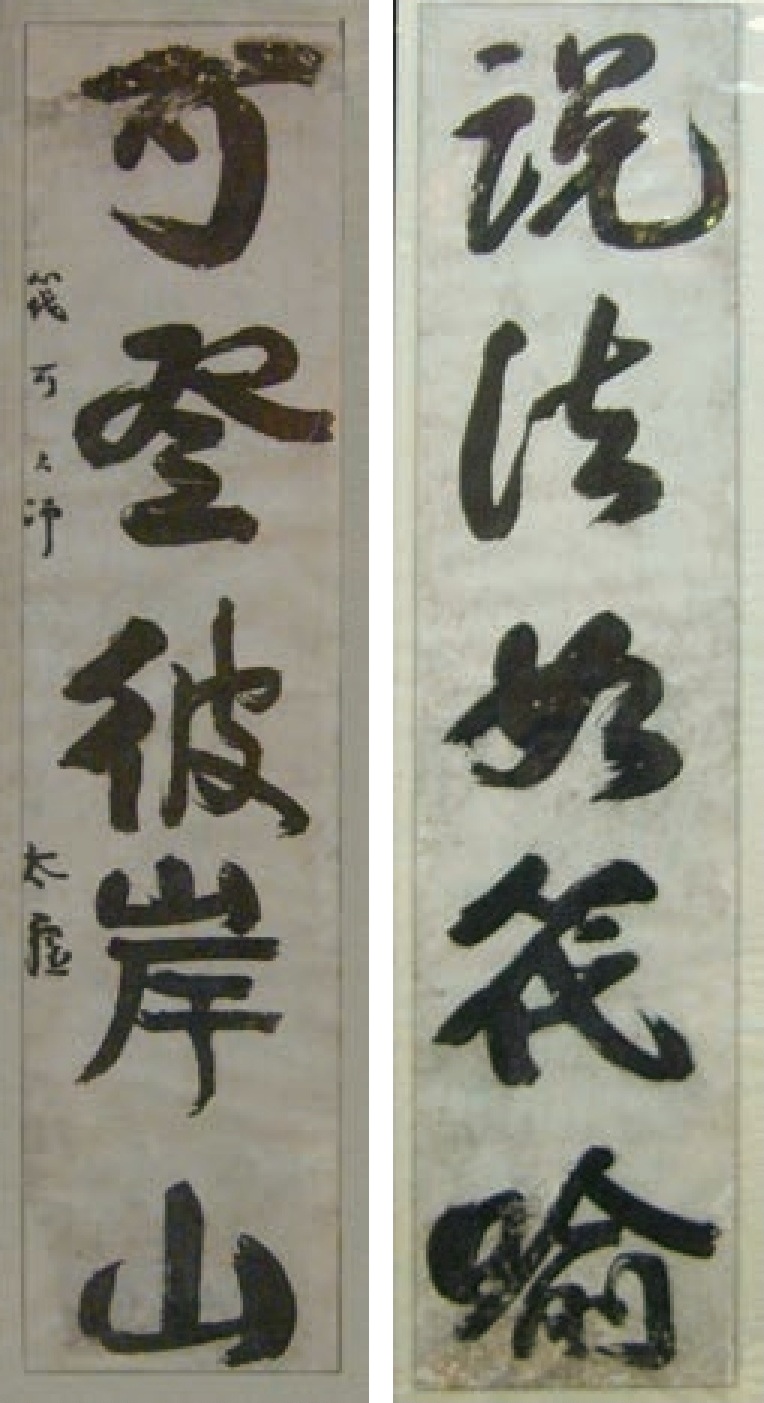 說法如筏喻
可登彼岸山
筏可大师
太虛